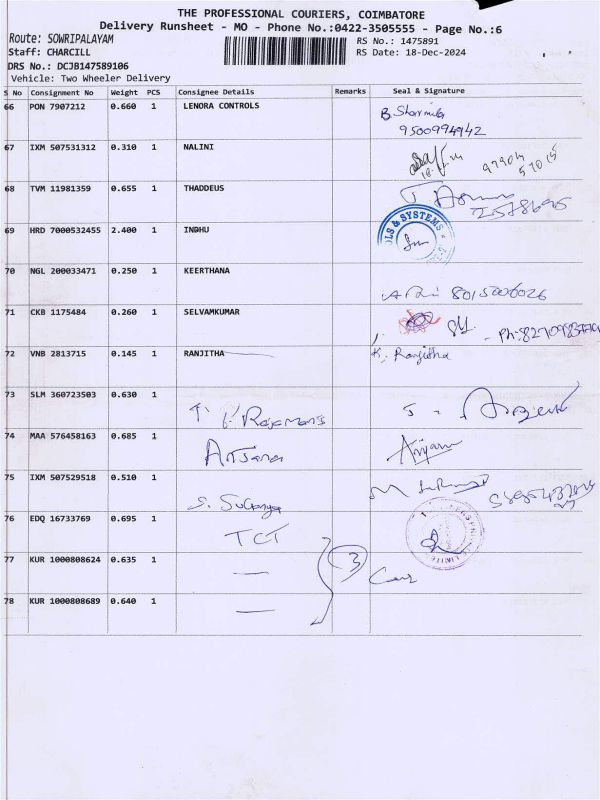 THE PROFESSIONAL COURIERS, COIMBATORE
Delivery Runsheet - MO - Phone No.:0422-3505555 - Page No.:6
Route: SOWRIPALAYAM
RS No.: 1475891
Staff: CHARCILL
RS Date: 18-Dec-2024
DRS No.: DCJB147589106
Vehicle: Two Wheeler Delivery
S No Consignment No Weight PCS Consignee Details Remarks Seal & Signature
66 PON 7907212 0.660 1 LENORA CONTROLS
B. Sharmila
9500994942
67 IXM 507531312 0.310 1 NALINI
68 TVM 11981359 0.655 1 THADDEUS
69 HRD 7000532455 2.400 1 INDHU
LS & SYSTEMS
70 NGL 200033471 0.250 1 KEERTHANA
71 CKB 1175484 0.260 1 SELVAMKUMAR
72 VNB 2813715 0.145 1 RANJITHA
K. Ranjitha
73 SLM 360723503 0.630 1
74 MAA 576458163 0.685 1
75 IXM 507529518 0.510 1
76 EDQ 16733769 0.695 1
TCT
77 KUR 1000808624 0.635 1
3
78 KUR 1000808689 0.640 1